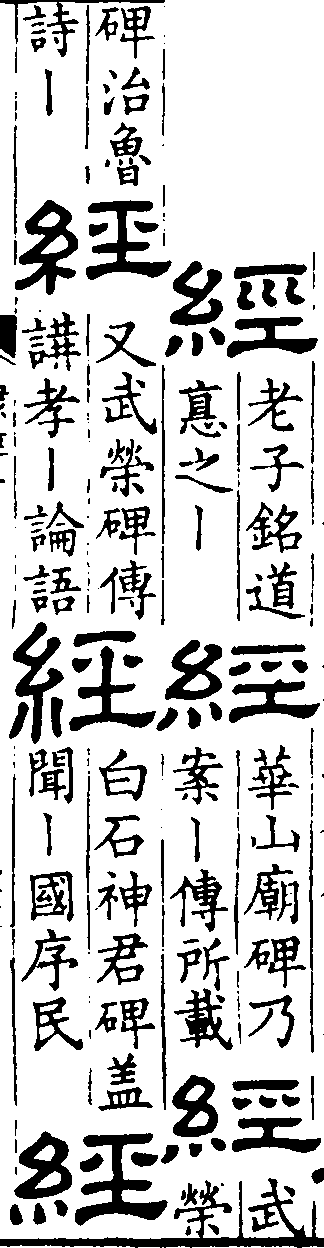 經
老子銘道
惪之丨
經
華山廟碑乃
案丨傳所載
經
武
榮
碑治魯
詩丨
經
又武榮碑傳
講孝丨論語
經
白石神君碑盖
聞丨國序民
經